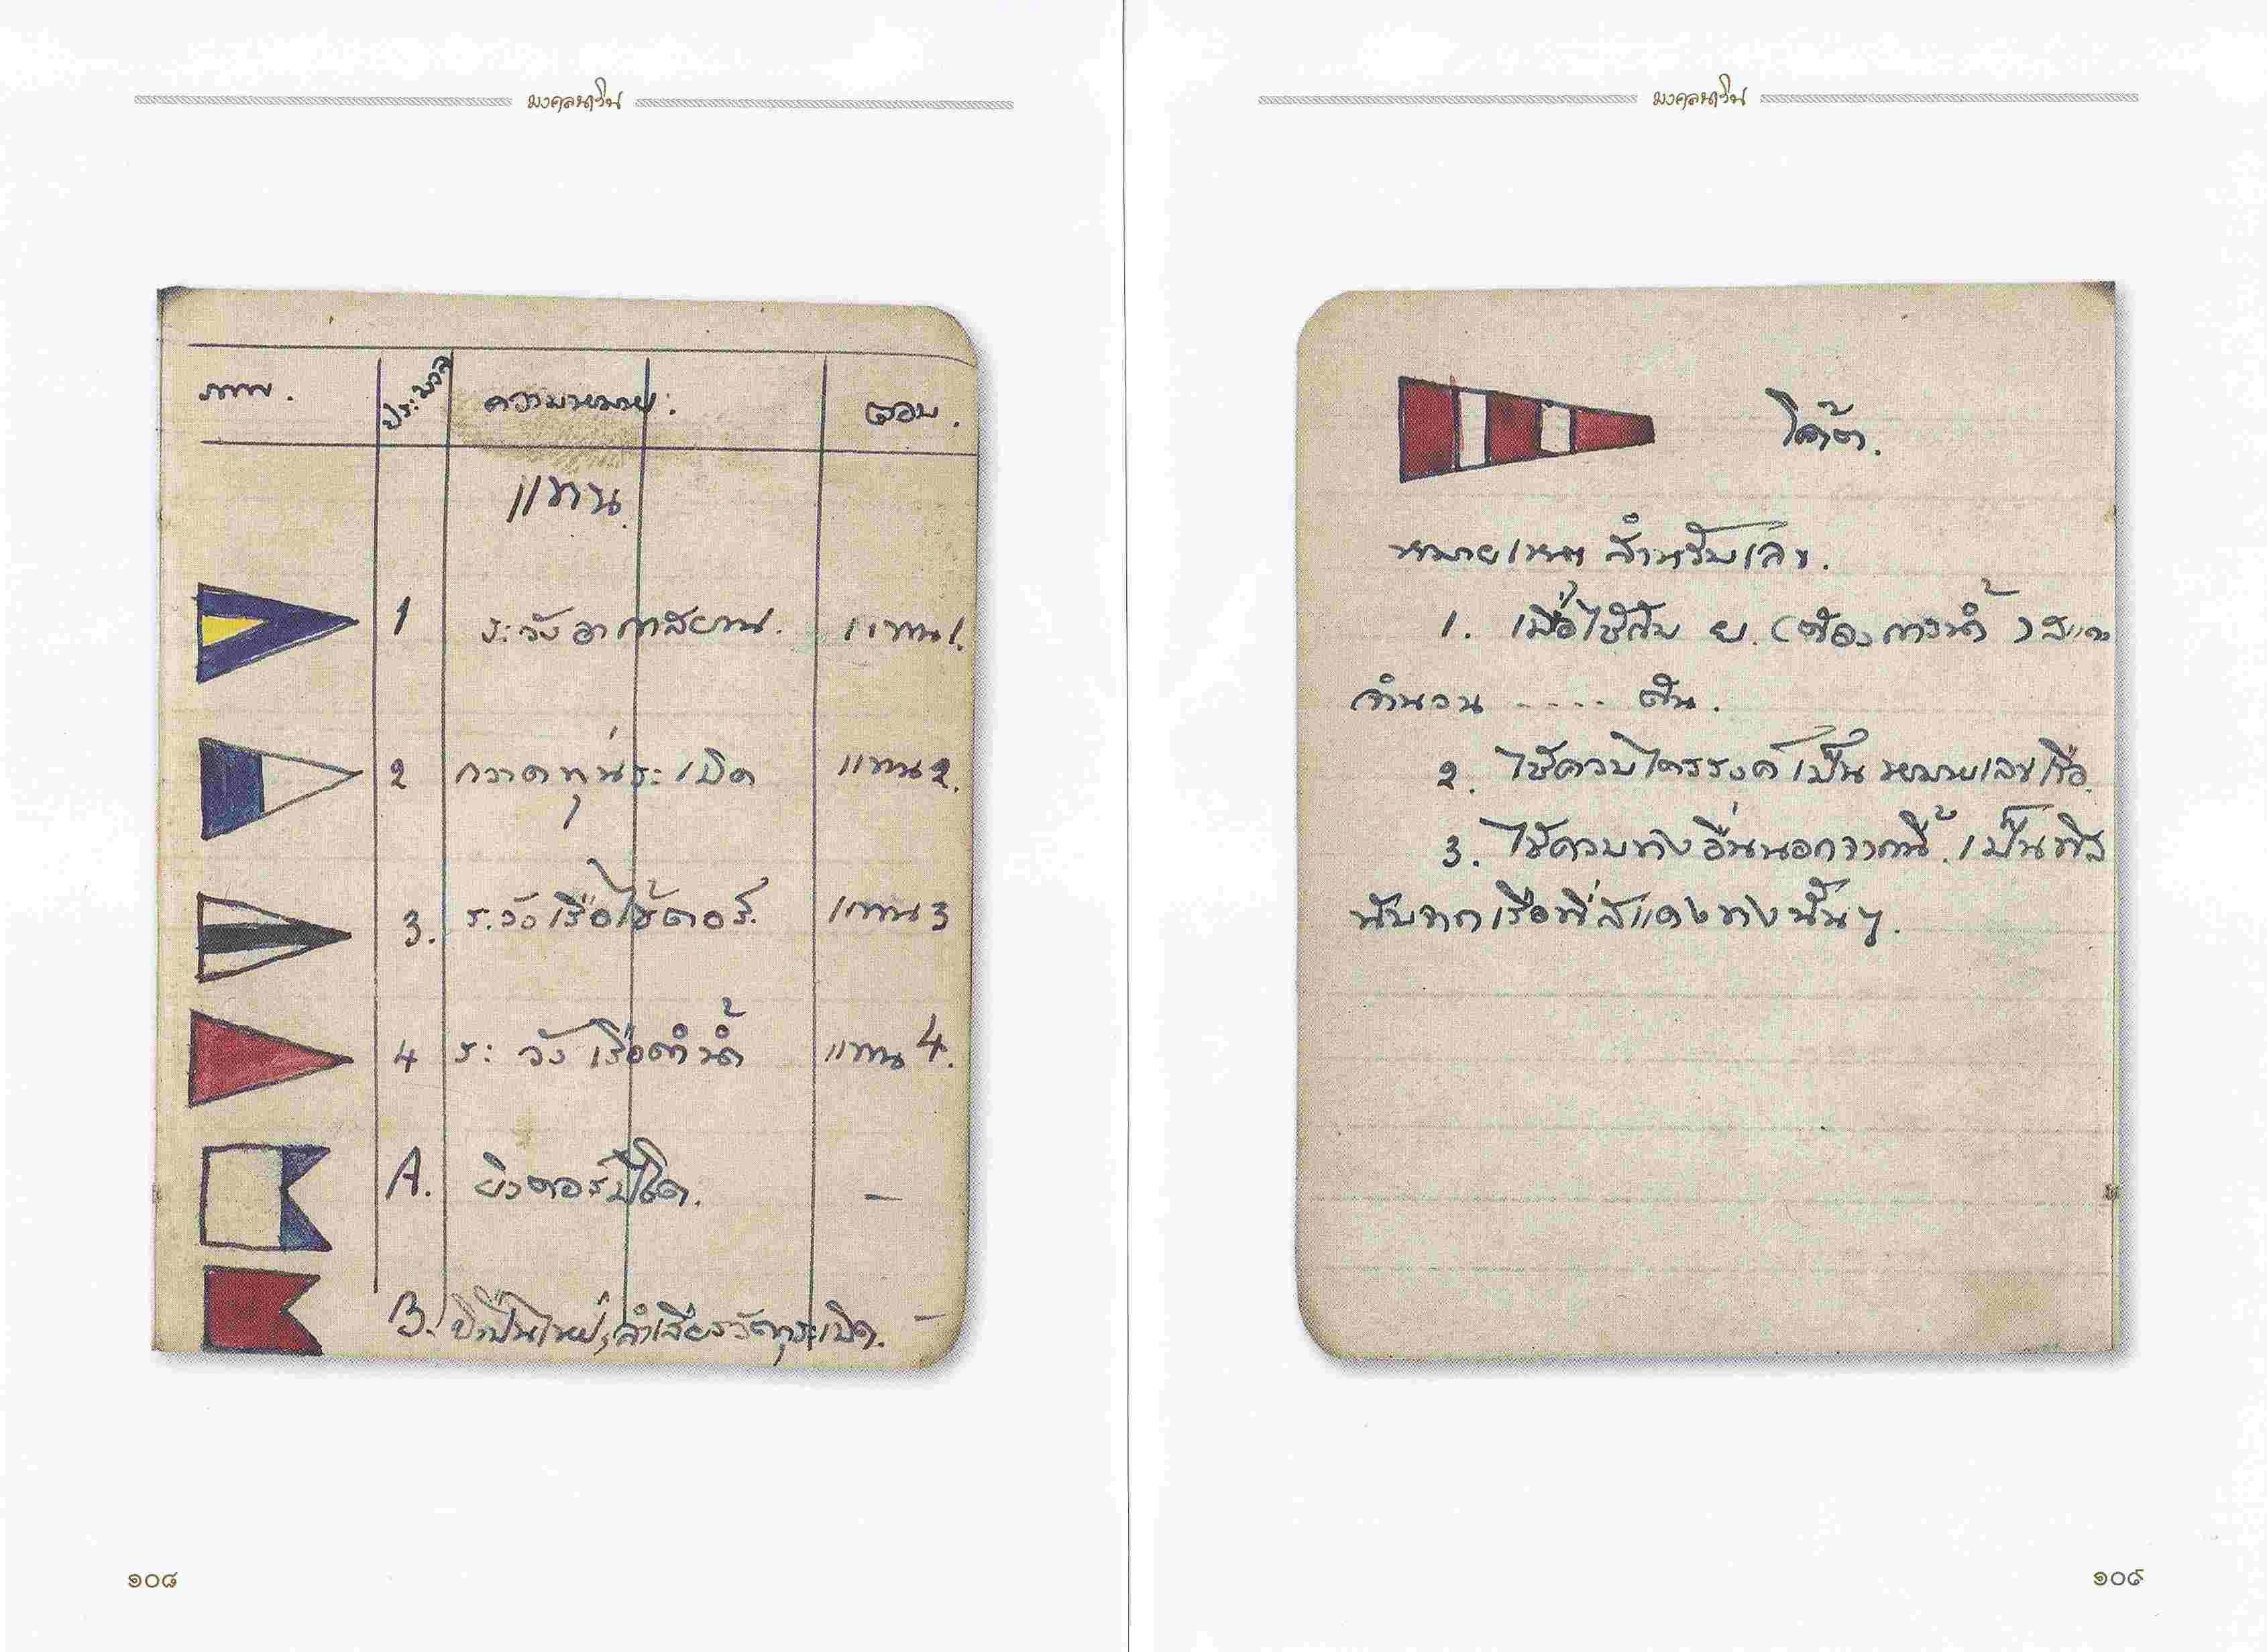 มงคลนาวิน
ภาพ. ประมวล ความหมาย. ตอบ.
แทน
1 ระวังอากาสยาน. แทน 1.
2 กวาดทุ่นระเบิด แทน 2.
3. ระวังเรือไช้ตอร์. แทน 3
4 ระวังเรือดำน้ำ แทน 4.
A. ยิงตอร์ปิโด. —
B. ยิงปืนไหย่, ลำเลียงวัตถุระเบิด. –
๑๐๘
มงคลนาวิน
โค๊ด.
หมายเหตุ สำหรับเลข.
1. เมื่อไช้กับ ย. (ต้องการน้ำ) สแดง
จำนวน .... ตัน.
2. ไช้ควบไตรรงค์เป็นหมายเลขเรือ.
3. ไช้ควบธงอื่นนอกจากนี้. เป็นทิส
นับจากเรือที่สแดงธงนั้นๆ.
๑๐๙